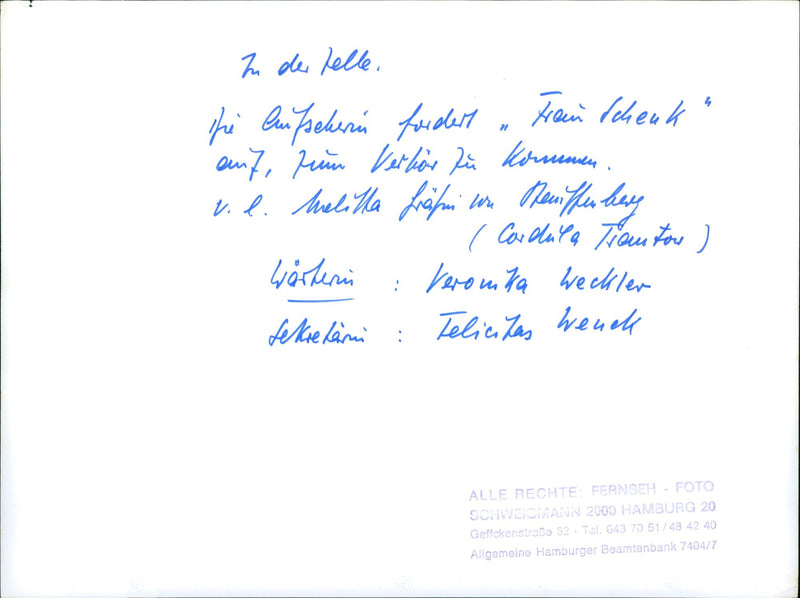 In der Zelle.
Die Aufseherin fordert „Frau Schenk"
auf, zum Verhör zu kommen.
v. l. Melitta Gräfin von Stauffenberg
(Cordula Trantow)
Wärterin : Veronika Weckler
Sekretärin : Felicitas Wenck
ALLE RECHTE: FERNSEH - FOTO
SCHWEIGMANN 2000 HAMBURG 20
Geffckenstraße 32 - Tel. 643 70 51 / 48 42 40
Allgemeine Hamburger Beamtenbank 7404/7